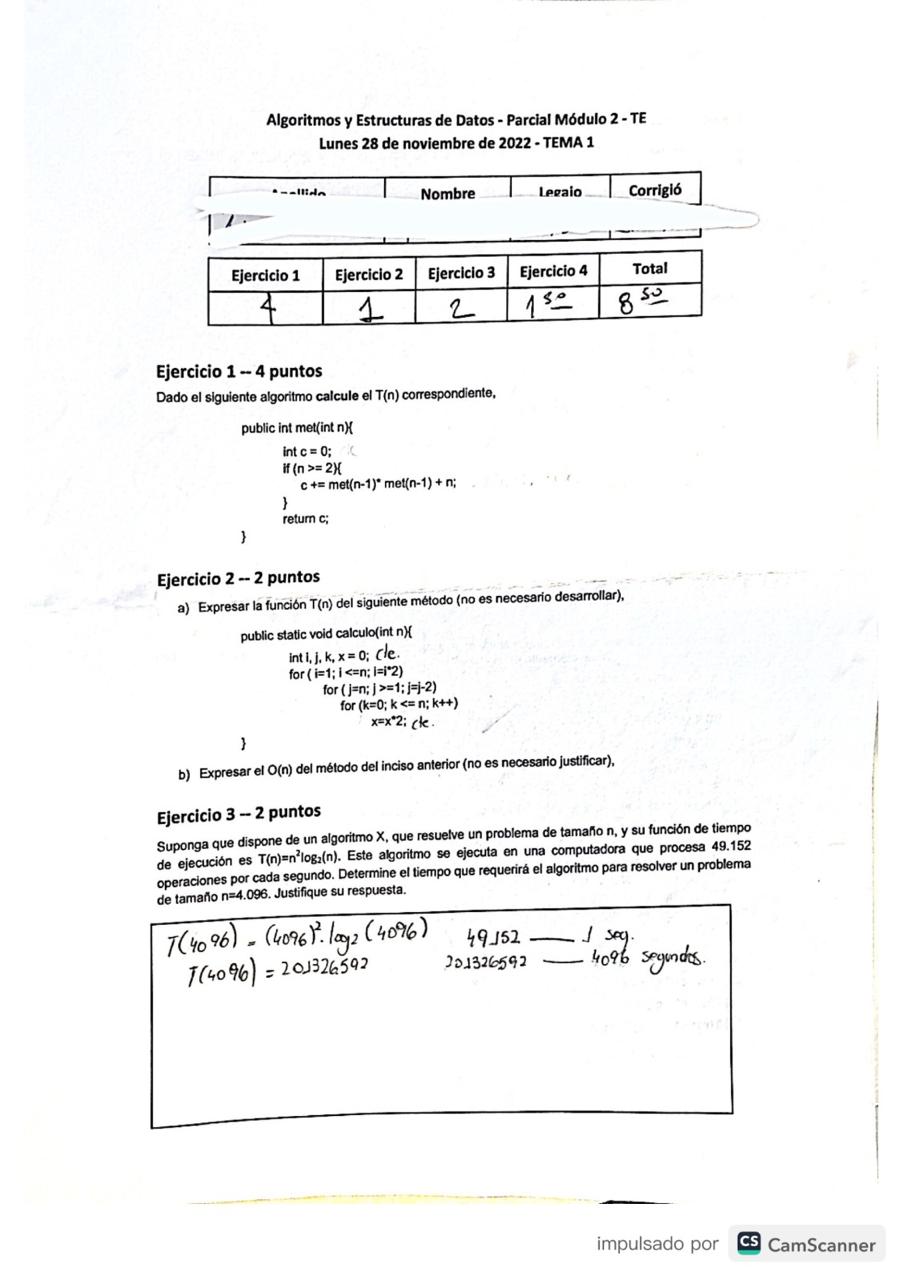 Algoritmos y Estructuras de Datos - Parcial Módulo 2 - TE
Lunes 28 de noviembre de 2022 - TEMA 1
Nombre Legajo Corrigió
Ejercicio 1 Ejercicio 2 Ejercicio 3 Ejercicio 4 Total
4 1 2 1 50 8 50
Ejercicio 1 -- 4 puntos
Dado el siguiente algoritmo calcule el T(n) correspondiente,
public int met(int n){
int c = 0;
if (n >= 2){
c += met(n-1)* met(n-1) + n;
}
return c;
}
Ejercicio 2 -- 2 puntos
a) Expresar la función T(n) del siguiente método (no es necesario desarrollar),
public static void calculo(int n){
int i, j, k, x = 0; cte.
for ( i=1; i <=n; i=i*2)
for ( j=n; j >=1; j=j-2)
for (k=0; k <= n; k++)
x=x*2; cte.
}
b) Expresar el O(n) del método del inciso anterior (no es necesario justificar),
Ejercicio 3 -- 2 puntos
Suponga que dispone de un algoritmo X, que resuelve un problema de tamaño n, y su función de tiempo
de ejecución es T(n)=n²log₂(n). Este algoritmo se ejecuta en una computadora que procesa 49.152
operaciones por cada segundo. Determine el tiempo que requerirá el algoritmo para resolver un problema
de tamaño n=4.096. Justifique su respuesta.
T(4096) = (4096)². log₂ (4096) 49152 —— 1 seg.
T(4096) = 201326592 201326592 —— 4096 segundos.
impulsado por CS CamScanner